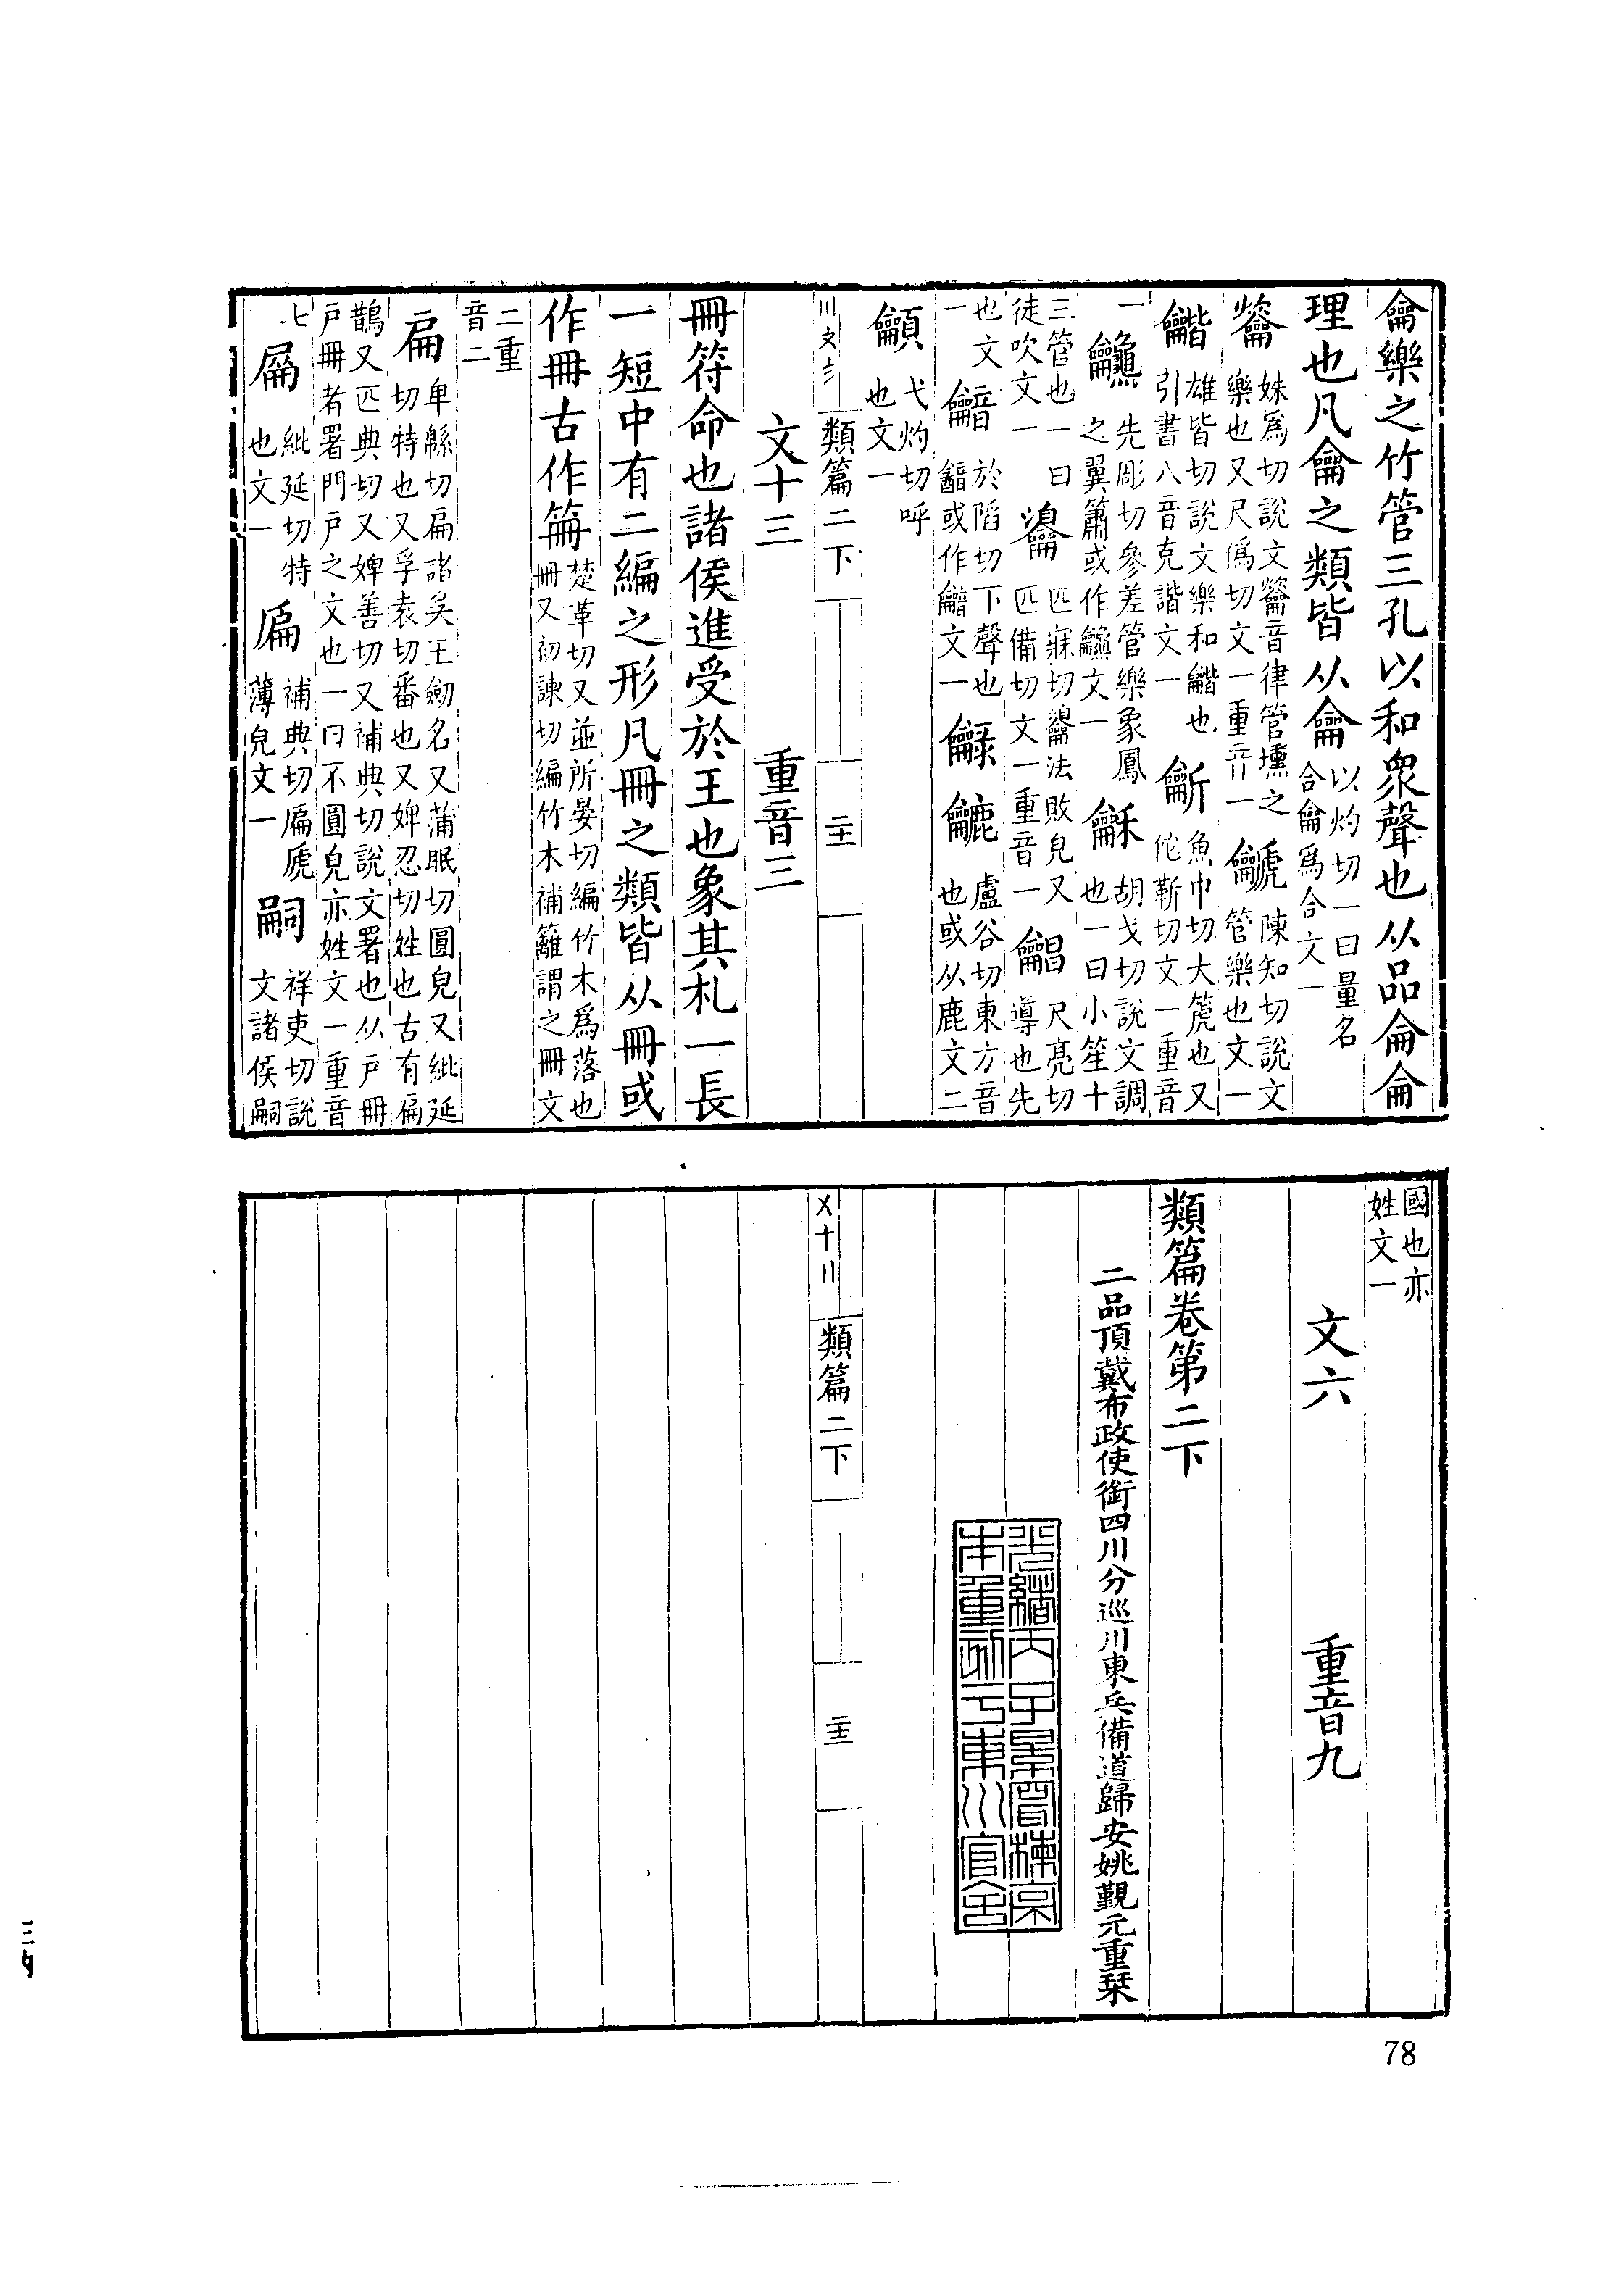 龠樂之竹管三孔以和衆聲也从品侖侖
理也凡龠之類皆从龠
以灼切一曰量名
合龠爲合文一
姝爲切說文音律管壎之
樂也又尺僞切文一重音一
陳知切說文
管樂也文一
龤
雄皆切說文樂和龤也
引書八音克諧文一
魚巾切大箎也又
佗靳切文一重音
一
先彫切參差管樂象鳳
之翼簫或作文一
龢
胡戈切說文調
也一曰小笙十
三管也一曰
徒吹文一
匹寐切法敗皃又
匹備切文一重音一
尺亮切
導也先
也文
一
於陷切下聲也
或作文一
龣
盧谷切東方音
也或从鹿文二
龥
弋灼切呼
也文一
類篇二下
二十二
文十三 重音三
冊符命也諸侯進受於王也象其札一長
一短中有二編之形凡冊之類皆从冊或
作冊古作笧
楚革切又並所晏切編竹木爲落也
冊又初諫切編竹木補籬謂之冊文
二重
音二
扁
卑緜切扁諸吳王劒名又蒲眠切圓皃又紕延
切特也又孚袁切番也又婢忍切姓也古有扁
鵲又匹典切又婢善切又補典切說文署也从戶冊
戶冊者署門戶之文也一曰不圓皃亦姓文一重音
七
紕延切特
也文一
補典切匾㔸
薄皃文一
嗣
祥吏切說
文諸侯嗣
國也亦
姓文一
文六 重音九
類篇卷第二下
二品頂戴布政使銜四川分巡川東兵備道歸安姚覲元重栞
光緒丙子景曹楝亭
本重刻于東川官舍
類篇二下
二十三
78